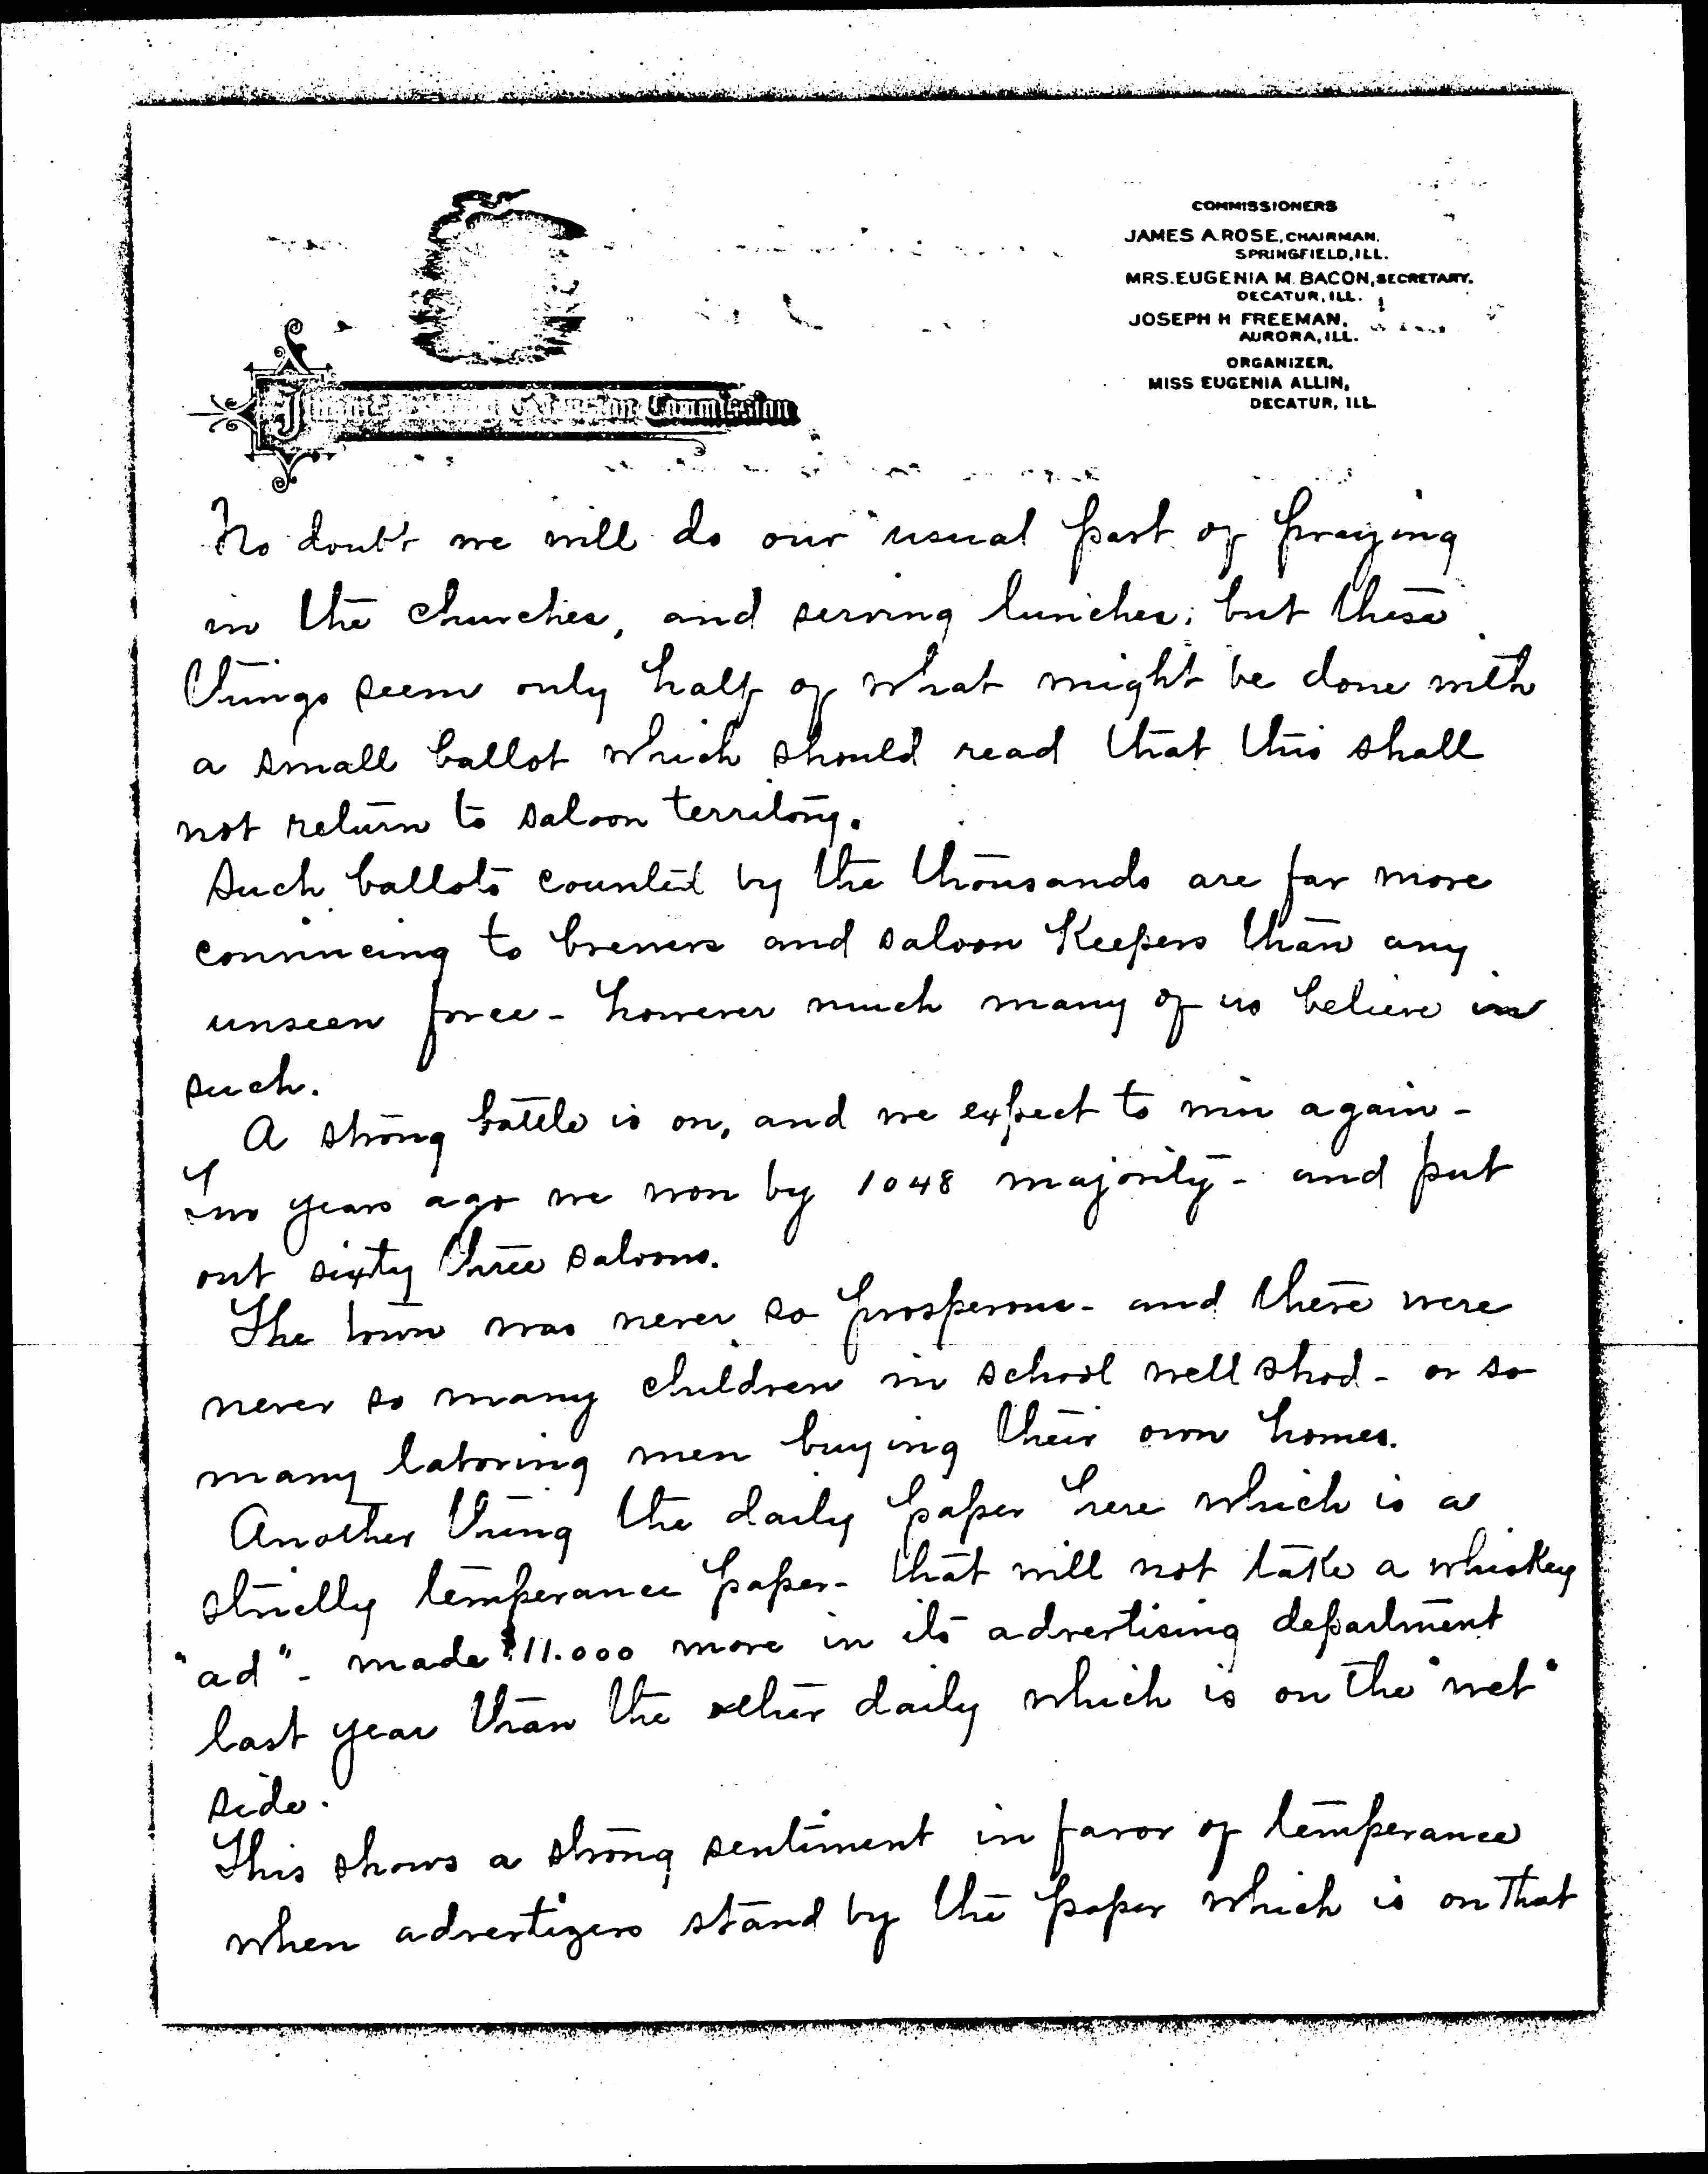 COMMISSIONERS
JAMES A. ROSE, CHAIRMAN.
SPRINGFIELD, ILL.
MRS. EUGENIA M. BACON, SECRETARY.
DECATUR, ILL.
JOSEPH H FREEMAN,
AURORA, ILL.
ORGANIZER,
MISS EUGENIA ALLIN,
DECATUR, ILL.
Illinois Extension Commission
No doubt we will do our usual part of praying
in the churches, and serving lunches; but these
things seem only half of what might be done with
a small ballot which should read that this shall
not return to saloon territory.
Such ballots counted by the thousands are far more
convincing to brewers and saloon Keepers than any
unseen force - however much many of us believe in
such.
A strong battle is on, and we expect to win again -
Two years ago we won by 1048 majority - and put
out sixty three saloons.
The town was never so prosperous - and there were
never so many children in school well shod - or so
many laboring men buying their own homes.
Another thing the daily paper here which is a
strictly temperance paper - that will not take a whiskey
"ad" - made $11.000 more in its advertising department
last year than the other daily which is on the "wet"
side.
This shows a strong sentiment in favor of temperance
when advertizers stand by the paper which is on that